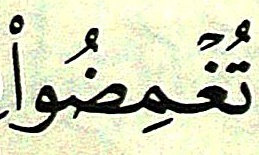 تُغْمِضُوا۟